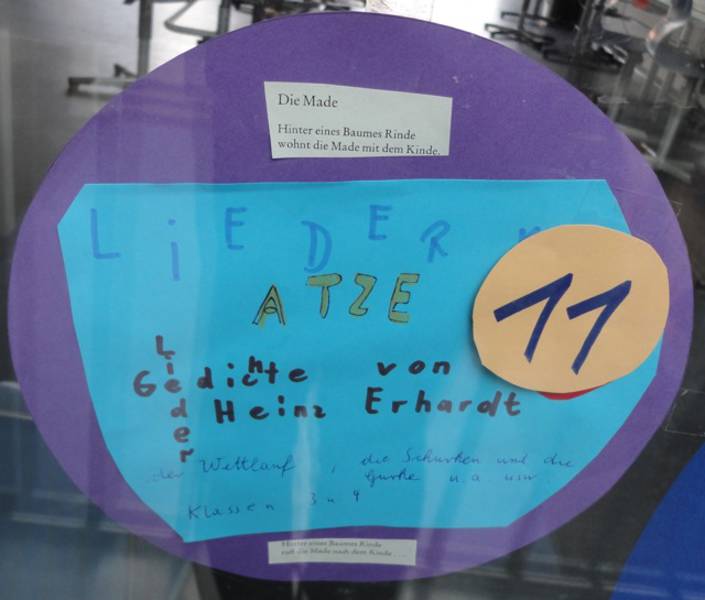 Die Made
Hinter eines Baumes Rinde
wohnt die Made mit dem Kinde.
LiEDER
ATZE
11
Lieder
Gedichte von
Heinz Erhardt
der Wettlauf, die Schurken und die
Gurke u.a. usw.
Klassen 3 u 4
Hinter eines Baumes Rinde
ruft die Made nach dem Kinde . . .